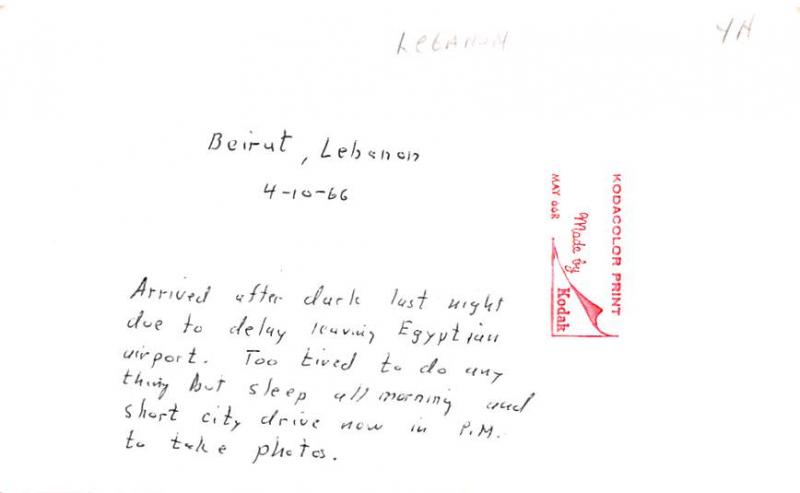 Lebanon
YH
Beirut, Lebanon
4-10-66
KODACOLOR PRINT
Made by
Kodak
MAY 66R
Arrived after dark last night
due to delay leaving Egyptian
airport. Too tired to do any
thing but sleep all morning and
short city drive now in P.M.
to take photos.